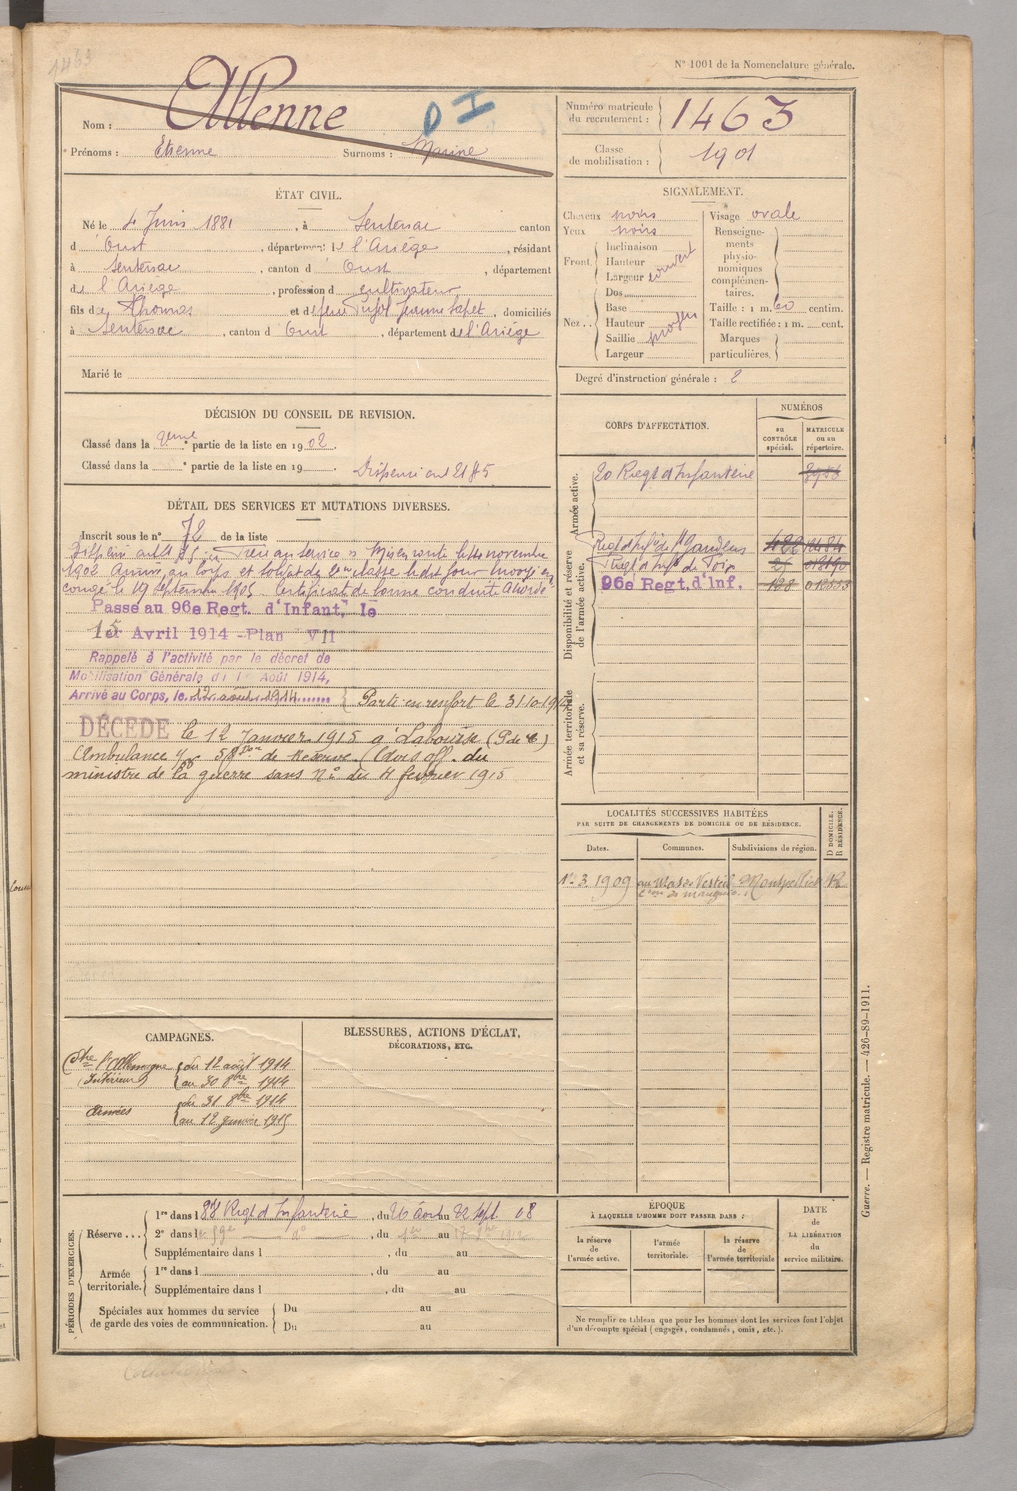 1463
N° 1001 de la Nomenclature générale.
Nom : Attenne
D I
Prénoms : Etienne Surnoms : Marine
Numéro matricule du recrutement : 1463
Classe de mobilisation : 1901
ÉTAT CIVIL.
Né le 4 Juin 1881, à Sentenac canton
d Oust, département de l'Ariège, résidant
à Sentenac, canton d Oust, département
de l'Ariège, profession d cultivateur
fils de Thomas et de Pujol Jeanne, domiciliés
à Sentenac, canton d Oust, département de l'Ariège
Marié le
SIGNALEMENT.
Cheveux noirs
Yeux noirs
Front. Inclinaison
Hauteur
Largeur couvert
Nez.. Dos
Base
Hauteur
Saillie moyen
Largeur
Visage ovale
Renseignements physionomiques complémentaires.
Taille : 1 m. 60 centim.
Taille rectifiée : 1 m. cent.
Marques particulières.
Degré d'instruction générale : 2
DÉCISION DU CONSEIL DE REVISION.
Classé dans la 2eme partie de la liste en 1902.
Classé dans la e partie de la liste en 19
Dispensé art 21 § 5
DÉTAIL DES SERVICES ET MUTATIONS DIVERSES.
Inscrit sous le n° 72 de la liste
Dispensé art 21 § 5 frère au service Mis en route le novembre
1902 Arrivé au Corps et soldat de 2me classe le dit jour Envoyé en
congé le 19 Septembre 1903. Certificat de bonne conduite Accordé
Passé au 96e Regt. d'Infant. le
1er Avril 1914 - Plan VII
Rappelé à l'activité par le décret de
Mobilisation Générale du 1er Août 1914,
Arrivé au Corps, le 12 aout 1914 Parti en renfort le 31-10-1914
DÉCÉDÉ le 12 Janvier 1915 à Labourse (P de C)
Ambulance 58me de Réserve (Avis off. du
ministre de la guerre sans N° du 4 fevrier 1915
CORPS D'AFFECTATION.
NUMÉROS
AU CONTRÔLE spécial.
MATRICULE ou au répertoire.
Armée active.
20 Regt d'Infanterie
Disponibilité et réserve de l'armée active.
Regt d'Infie de St Gaudens
Regt d'Infie de Foix
96e Regt. d'Inf. 128
Armée territoriale et sa réserve.
LOCALITÉS SUCCESSIVES HABITÉES
PAR SUITE DE CHANGEMENTS DE DOMICILE OU DE RÉSIDENCE.
Dates. Communes. Subdivisions de région. D DOMICILE. R RÉSIDENCE.
1er 3. 1909 au Mas de Montpellier R
CAMPAGNES.
Ctre l'Allemagne
(Intérieur) du 12 août 1914
au 30 8bre 1914
Armées du 31 8bre 1914
au 12 janvier 1915
BLESSURES, ACTIONS D'ÉCLAT,
DÉCORATIONS, ETC.
PÉRIODES D'EXERCICES.
Réserve... 1re dans l 88 Regt d'Infanterie, du 26 août au 22 sept 08
2e dans l 59e do, du au
Supplémentaire dans l , du au
Armée territoriale. 1re dans l , du au
Supplémentaire dans l , du au
Spéciales aux hommes du service de garde des voies de communication. Du au
Du au
ÉPOQUE
À LAQUELLE L'HOMME DOIT PASSER DANS :
la réserve de l'armée active.
l'armée territoriale.
la réserve de l'armée territoriale
DATE de LA LIBÉRATION du service militaire.
Ne remplir ce tableau que pour les hommes dont les services font l'objet
d'un décompte spécial (engagés, condamnés, omis, etc.).
Guerre. — Registre matricule. — 426-89-1911.